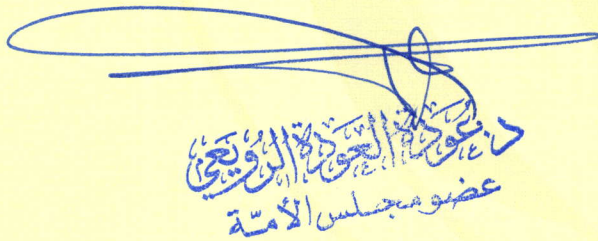 د. عودة العودة الرويعي
عضو مجلس الأمة